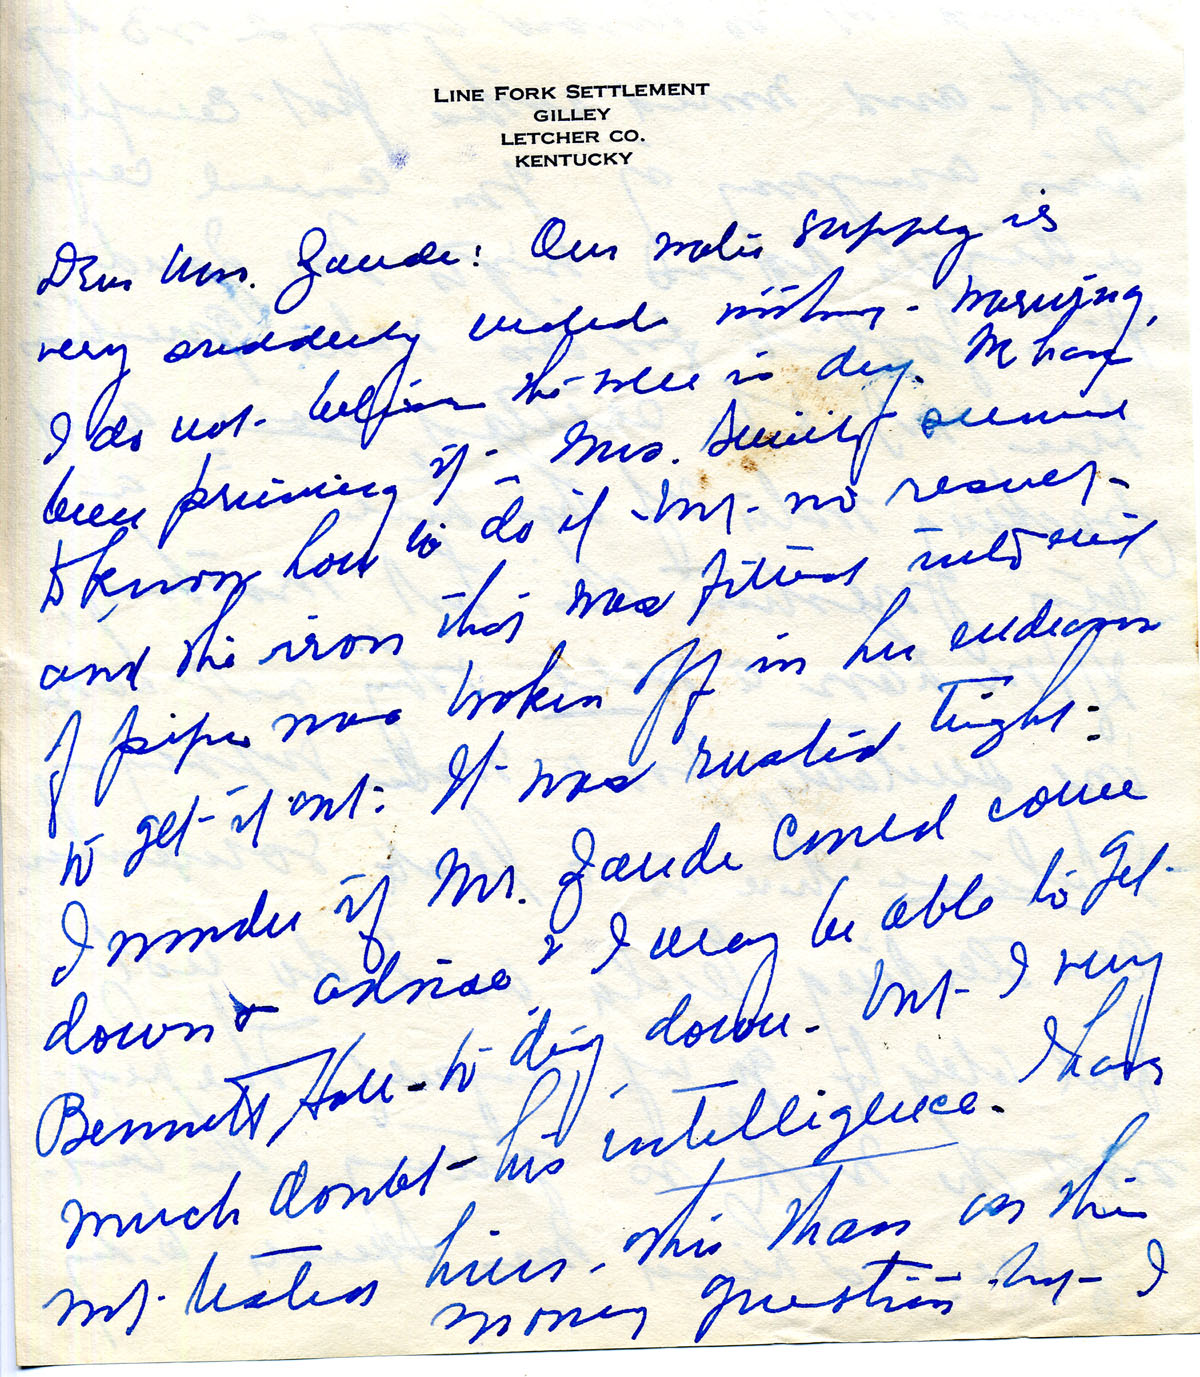 LINE FORK SETTLEMENT
GILLEY
LETCHER CO.
KENTUCKY
Dear Mrs. Zande: Our water supply is
very suddenly ended without warning,
I do not believe the well is dry. We have
been priming it - Mrs. seemed
to know how to do it - but - no result -
and the iron that was fitted into end
of pipe was broken off in her endeavor
to get it out: It was rusted tight:
I wonder if Mr. Zande could come
down & advise & I may be able to get
Bennett Hall - to dig down - but I very
much doubt - his intelligence. I have
not tested him - this than as the
money question - but - I